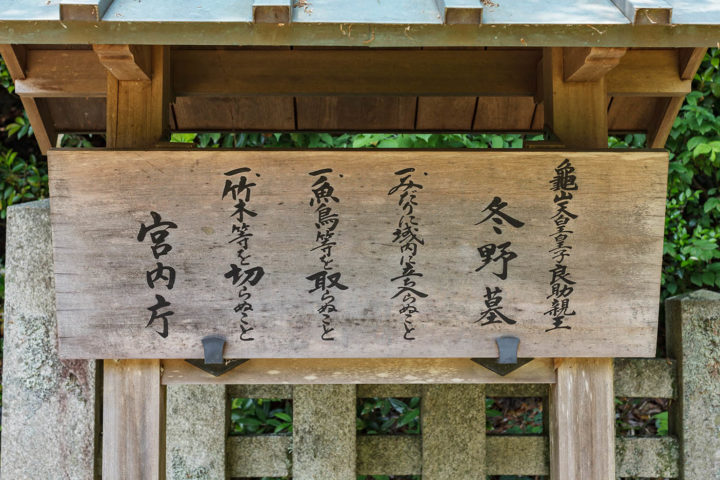 龜山天皇皇子良助親王
冬野墓
一、みだりに域内に立ち入らぬこと
一、魚鳥等を取らぬこと
一、竹木等を切らぬこと
宮内庁